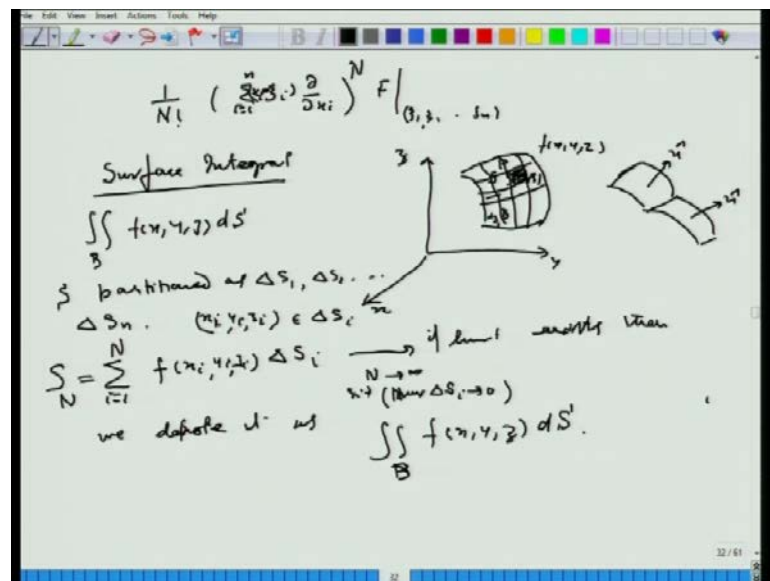 File Edit View Insert Actions Tools Help
1/N! ( Σ_{i=1}^{n} ∂/∂x_i )^N F |
Surface Integral
f(x,y,z)
z
∬_S f(x,y,z) dS
n̂
n̂
y
x
S partitioned as ΔS₁, ΔS₂ ...
ΔSn. (xi, yi, zi) ∈ ΔSi
S_N = Σ_{i=1}^{N} f(xi, yi, zi) ΔSi → if limit exists then
N → ∞
s.t (max ΔSi → 0)
we denote it as ∬_S f(x,y,z) dS.
32 / 61
32